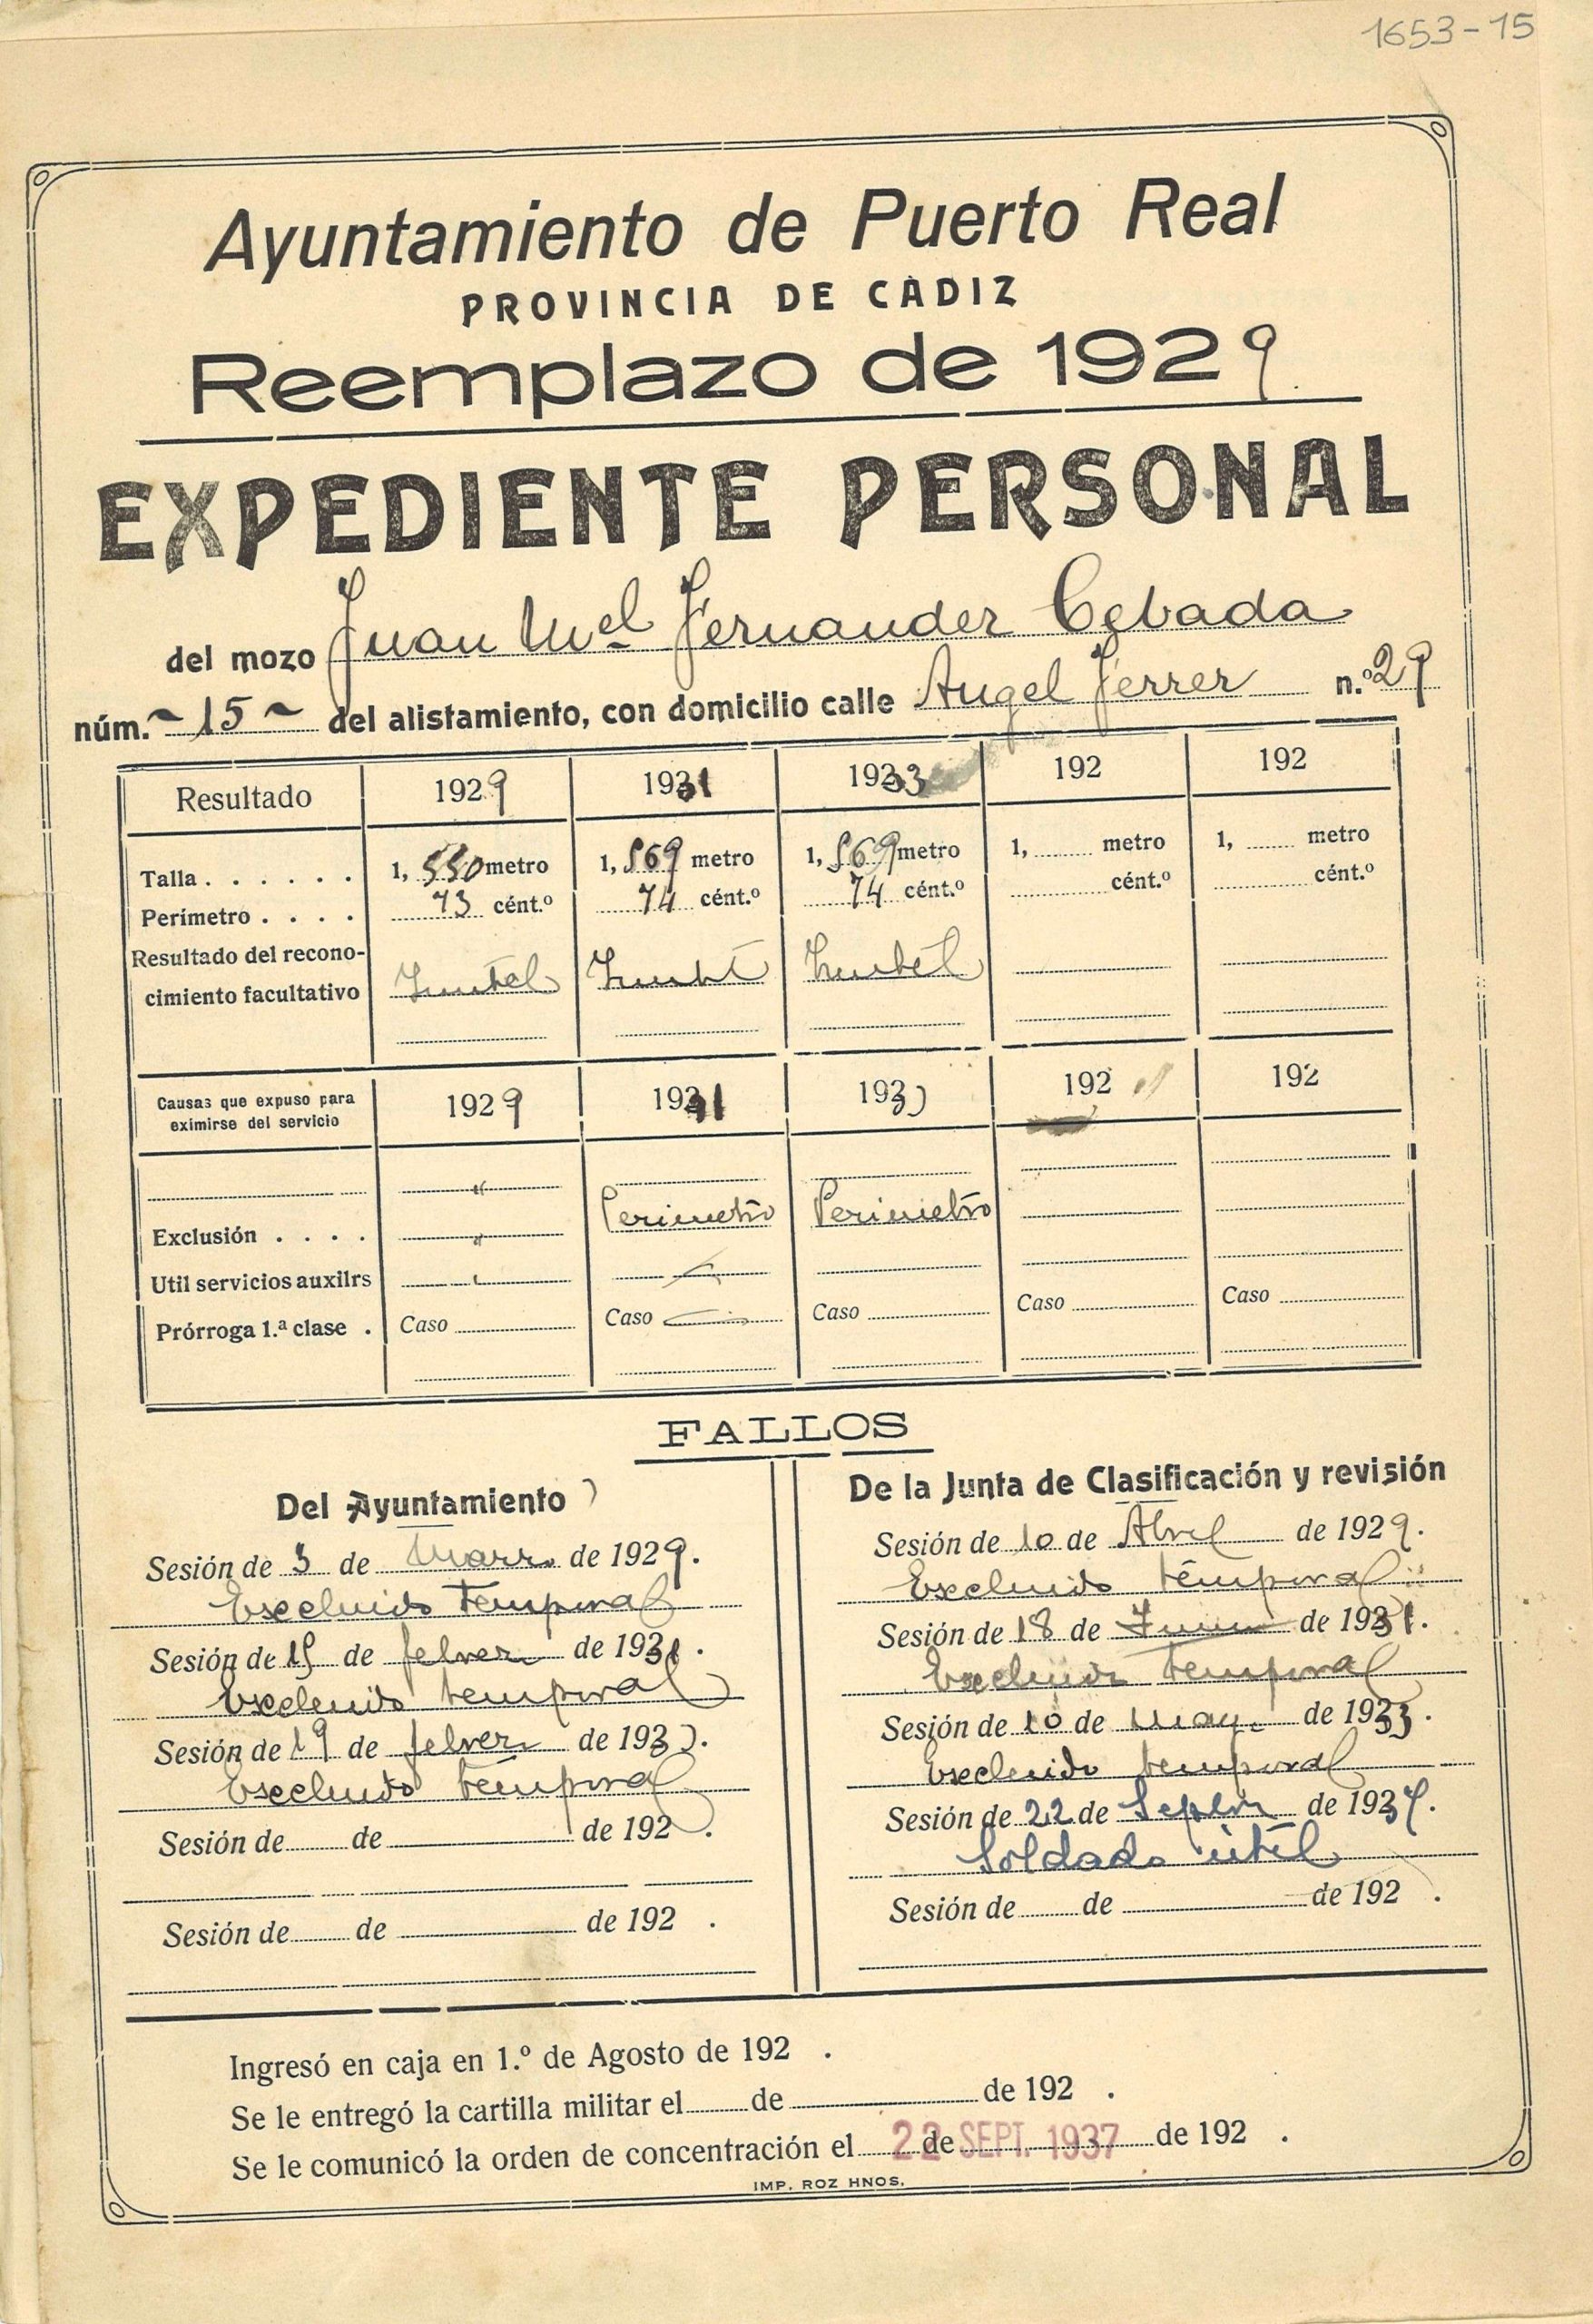 1653-15
Ayuntamiento de Puerto Real
PROVINCIA DE CÁDIZ
Reemplazo de 1929.
EXPEDIENTE PERSONAL
del mozo Juan Mel Fernandez Cebada
núm. 15 del alistamiento, con domicilio calle Angel Ferrer n.º 29
Resultado 1929 1931 1933 192 192
Talla . . . . . . 1, 550 metro 1, 569 metro 1, 569 metro 1, metro 1, metro
Perímetro . . . . 73 cént.º 74 cént.º 74 cént.º cént.º cént.º
Resultado del recono-
cimiento facultativo
Causas que expuso para
eximirse del servicio 1929 1931 1933 192 192
Exclusión . . . . Perimetro Perimetro
Util servicios auxilrs
Prórroga 1.ª clase . Caso Caso Caso Caso Caso
FALLOS
Del Ayuntamiento
Sesión de 3 de Marzo de 1929.
Excluido Temporal
Sesión de 15 de febrero de 1931.
Excluido temporal
Sesión de 19 de febrero de 1933.
Excluido temporal
Sesión de de de 192 .
Sesión de de de 192 .
De la Junta de Clasificación y revisión
Sesión de 10 de Abril de 1929.
Excluido temporal
Sesión de 18 de de 1931.
Excluido temporal
Sesión de 10 de mayo de 1933.
Excluido temporal
Sesión de 22 de Sepbre de 1937.
Soldado útil
Sesión de de de 192 .
Ingresó en caja en 1.º de Agosto de 192 .
Se le entregó la cartilla militar el de de 192 .
Se le comunicó la orden de concentración el 22 de SEPT. 1937 de 192 .
IMP. ROZ HNOS.